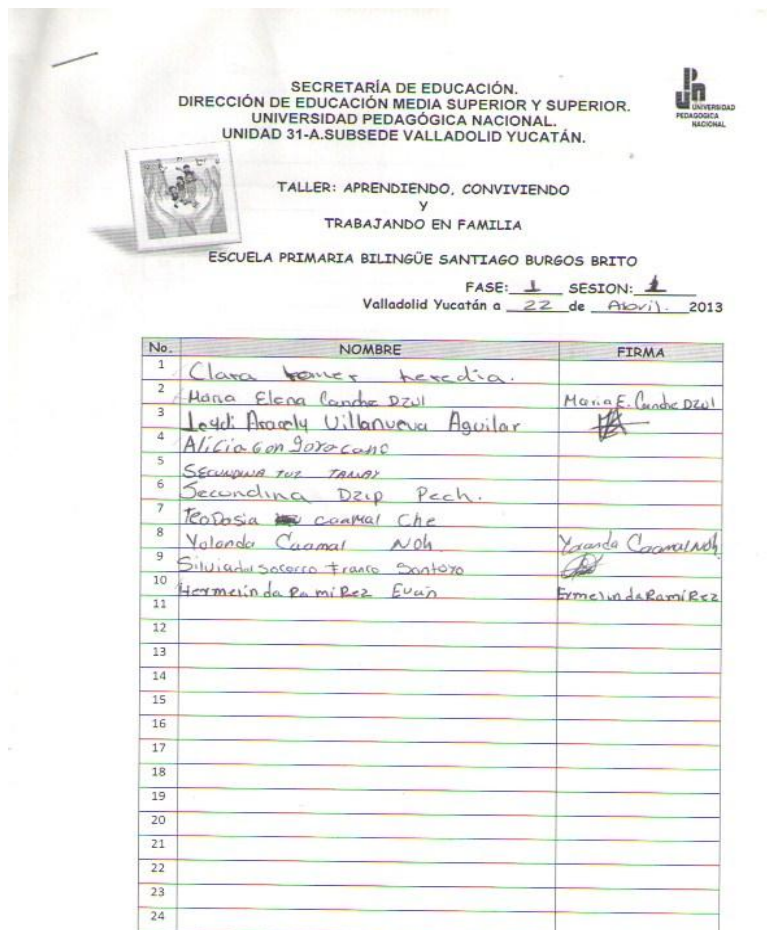 SECRETARÍA DE EDUCACIÓN.
DIRECCIÓN DE EDUCACIÓN MEDIA SUPERIOR Y SUPERIOR.
UNIVERSIDAD PEDAGÓGICA NACIONAL.
UNIDAD 31-A.SUBSEDE VALLADOLID YUCATÁN.
UNIVERSIDAD
PEDAGÓGICA
NACIONAL
TALLER: APRENDIENDO, CONVIVIENDO
Y
TRABAJANDO EN FAMILIA
ESCUELA PRIMARIA BILINGÜE SANTIAGO BURGOS BRITO
FASE: 1 SESION: 1
Valladolid Yucatán a 22 de Abril. 2013
No. NOMBRE FIRMA
1 Clara heredia.
2 Maria Elena Canche Dzul Maria E. Canche Dzul
3 Leydi Aracely Villanueva Aguilar
4 Alicia Gongora cano
5 SECUNDINA TUZ TAMAY
6 Secundina Dzip Pech.
7 Teodosia caamal Che
8 Yolanda Caamal Noh Yolanda Caamal Noh
9 Silvia del socorro Franco Santoyo
10 Hermelinda RamiRez Euan ErmelindaRamiRez
11
12
13
14
15
16
17
18
19
20
21
22
23
24